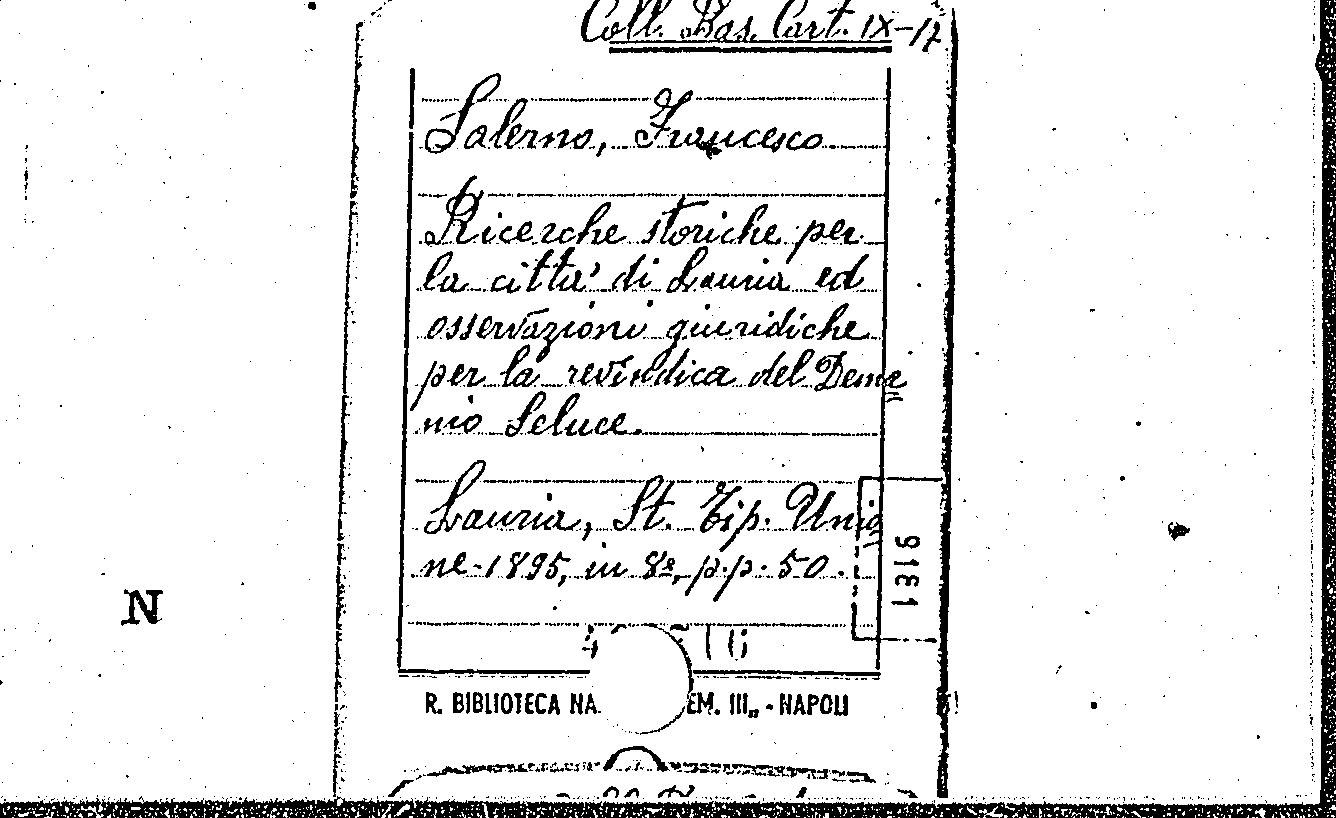 Coll. Bas. Cart. IX-17
Salerno, Francesco.
Ricerche storiche per
la città di Lauria ed
osservazioni giuridiche
per la revindica del Dema
nio Seluce.
Lauria, St. Tip. Unio
ne - 1895, in 8º, p.p. 50.
9161
N
R. BIBLIOTECA NA EM. III„ - NAPOLI